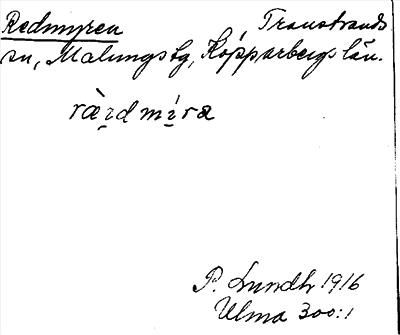 Redmyren Transtrands
sn, Malungs tg, Kopparbergs län.
ràɪ̯d mɪ́ra
P. Lundh 1916
Ulma 300:1